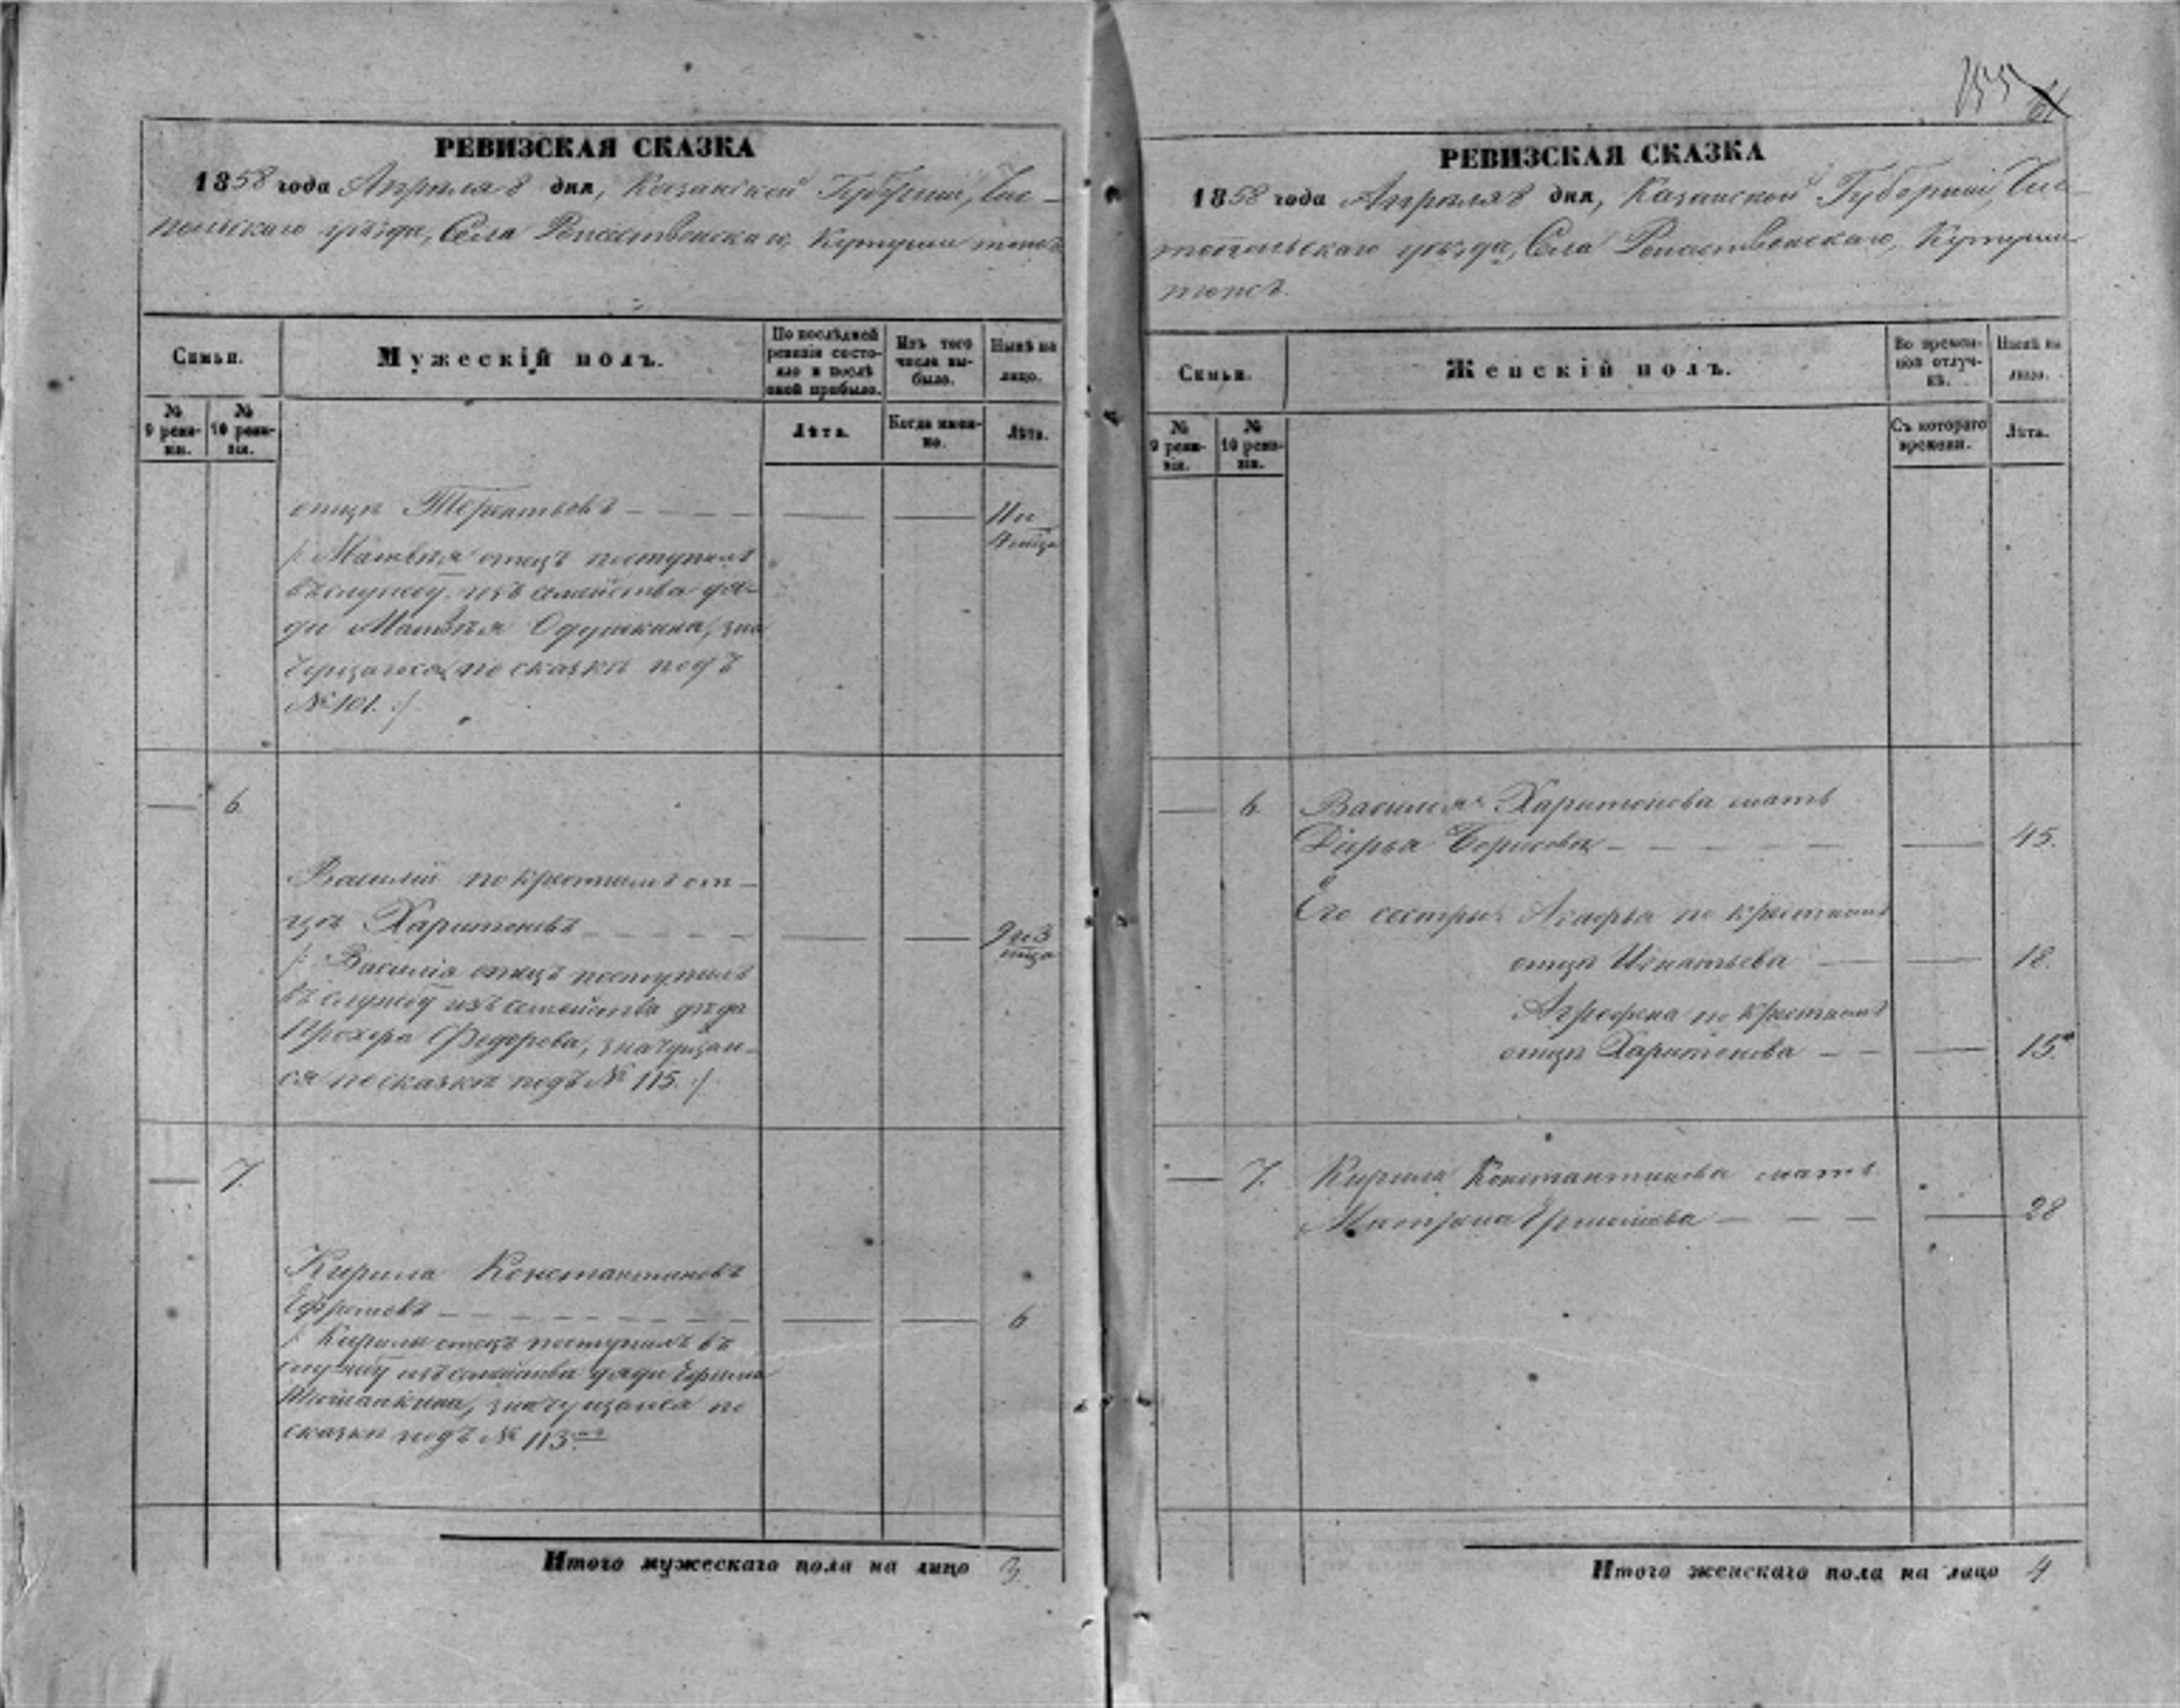 155 61
РЕВИЗСКАЯ СКАЗКА
1858 года Апреля 8 дня, Казанской Губернии, Чис-
польскаго уѣзда, Села Рожественскаго, Кутуши тожъ
Семьи.
Мужескій полъ.
По послѣдней ревизіи состояло и послѣ оной прибыло.
Изъ того числа выбыло.
Нынѣ на лицо.
№ 9 ревизіи.
№ 10 ревизіи.
Лѣта.
Когда именно.
Лѣта.
отцѣ Терентьевъ
11 и
4 мѣца
/: Матвѣя отецъ поступилъ
въ службу изъ семейства дя-
ди Матвѣя Одушкина, зна
чущагося по сказкѣ подъ
№ 101. :/
6.
Василій по крестномъ от-
цѣ Харитоновъ
9 и 3
мѣца
/: Василія отецъ поступилъ
въ службу изъ семейства дѣда
Прохора Федорова, значущаго-
ся по сказкѣ подъ № 115. :/
7.
Кирила Константиновъ
Ефремовъ
6
/: Кирилы отецъ поступилъ въ
службу изъ семейства дяди Ефрема
значущагося по
сказкѣ подъ № 113
Итого мужескаго пола на лицо 3.
РЕВИЗСКАЯ СКАЗКА
1858 года Апреля 8 дня, Казанской Губерніи, Чис-
топольскаго уѣзда, Села Рожественскаго, Кутуши
тожъ.
Семьи.
Женскій полъ.
Во временной отлучкѣ.
Нынѣ на лицо.
№ 9 ревизіи.
№ 10 ревизіи.
Съ котораго времени.
Лѣта.
6. Василія Харитонова мать
Дарья Борисова 45.
Его сестры Агафья по крестномъ
отцѣ Игнатьева 18.
Аграфена по крестномъ
отцѣ Харитонова 15
7. Кирила Константинова мать
Матрена 28
Итого женскаго пола на лицо 4